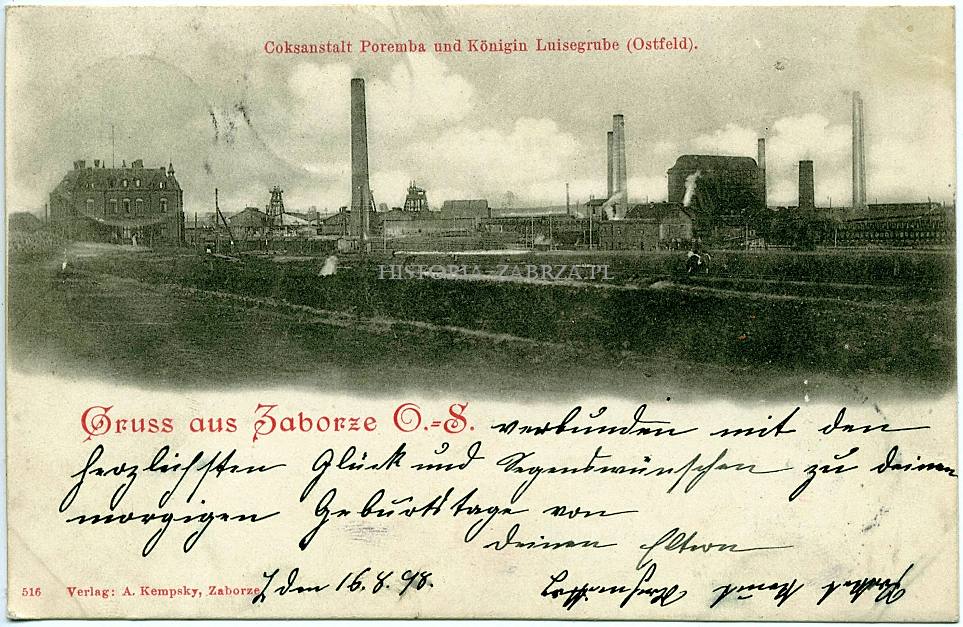 Coksanstalt Poremba und Königin Luisegrube (Ostfeld).
HISTORIA-ZABRZA.PL
Gruss aus Zaborze O.-S. verbunden mit den
herzlichsten Glück und Segenswünschen zu deinem
morgigen Geburtstage von
deinen Eltern
516 Verlag: A. Kempsky, Zaborze, d den 16.8.98.